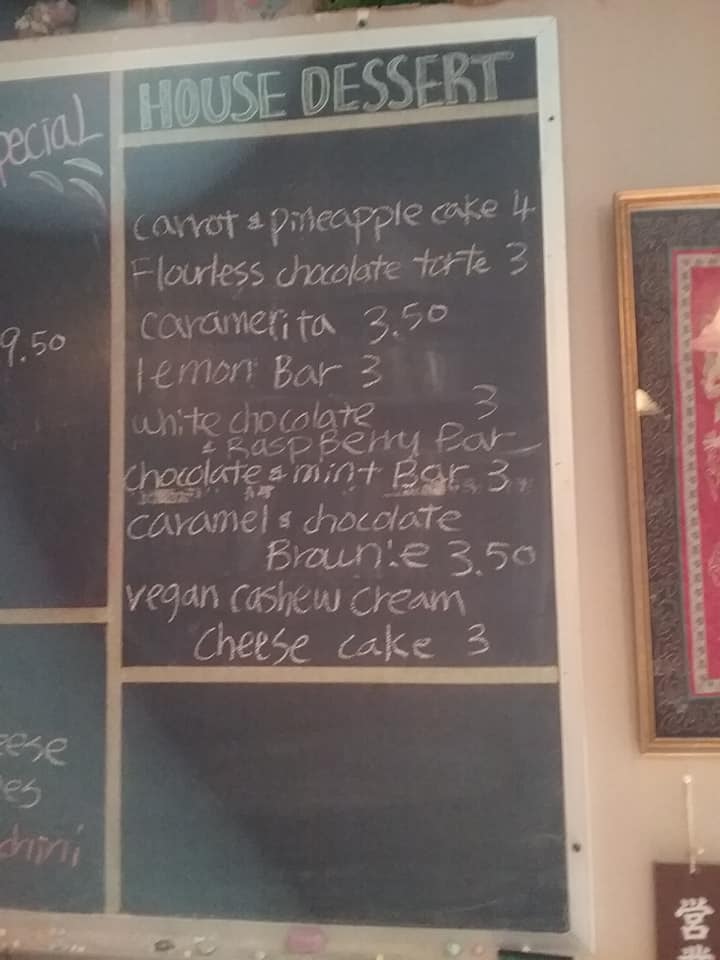 HOUSE DESSERT
carrot & pineapple cake 4
Flourless chocolate torte 3
caramerita 3.50
lemon Bar 3
white chocolate 3
& RaspBerry Bar
chocolate & mint Bar 3
caramel & chocolate
Brownie 3.50
vegan cashew cream
cheese cake 3
9.50
営業